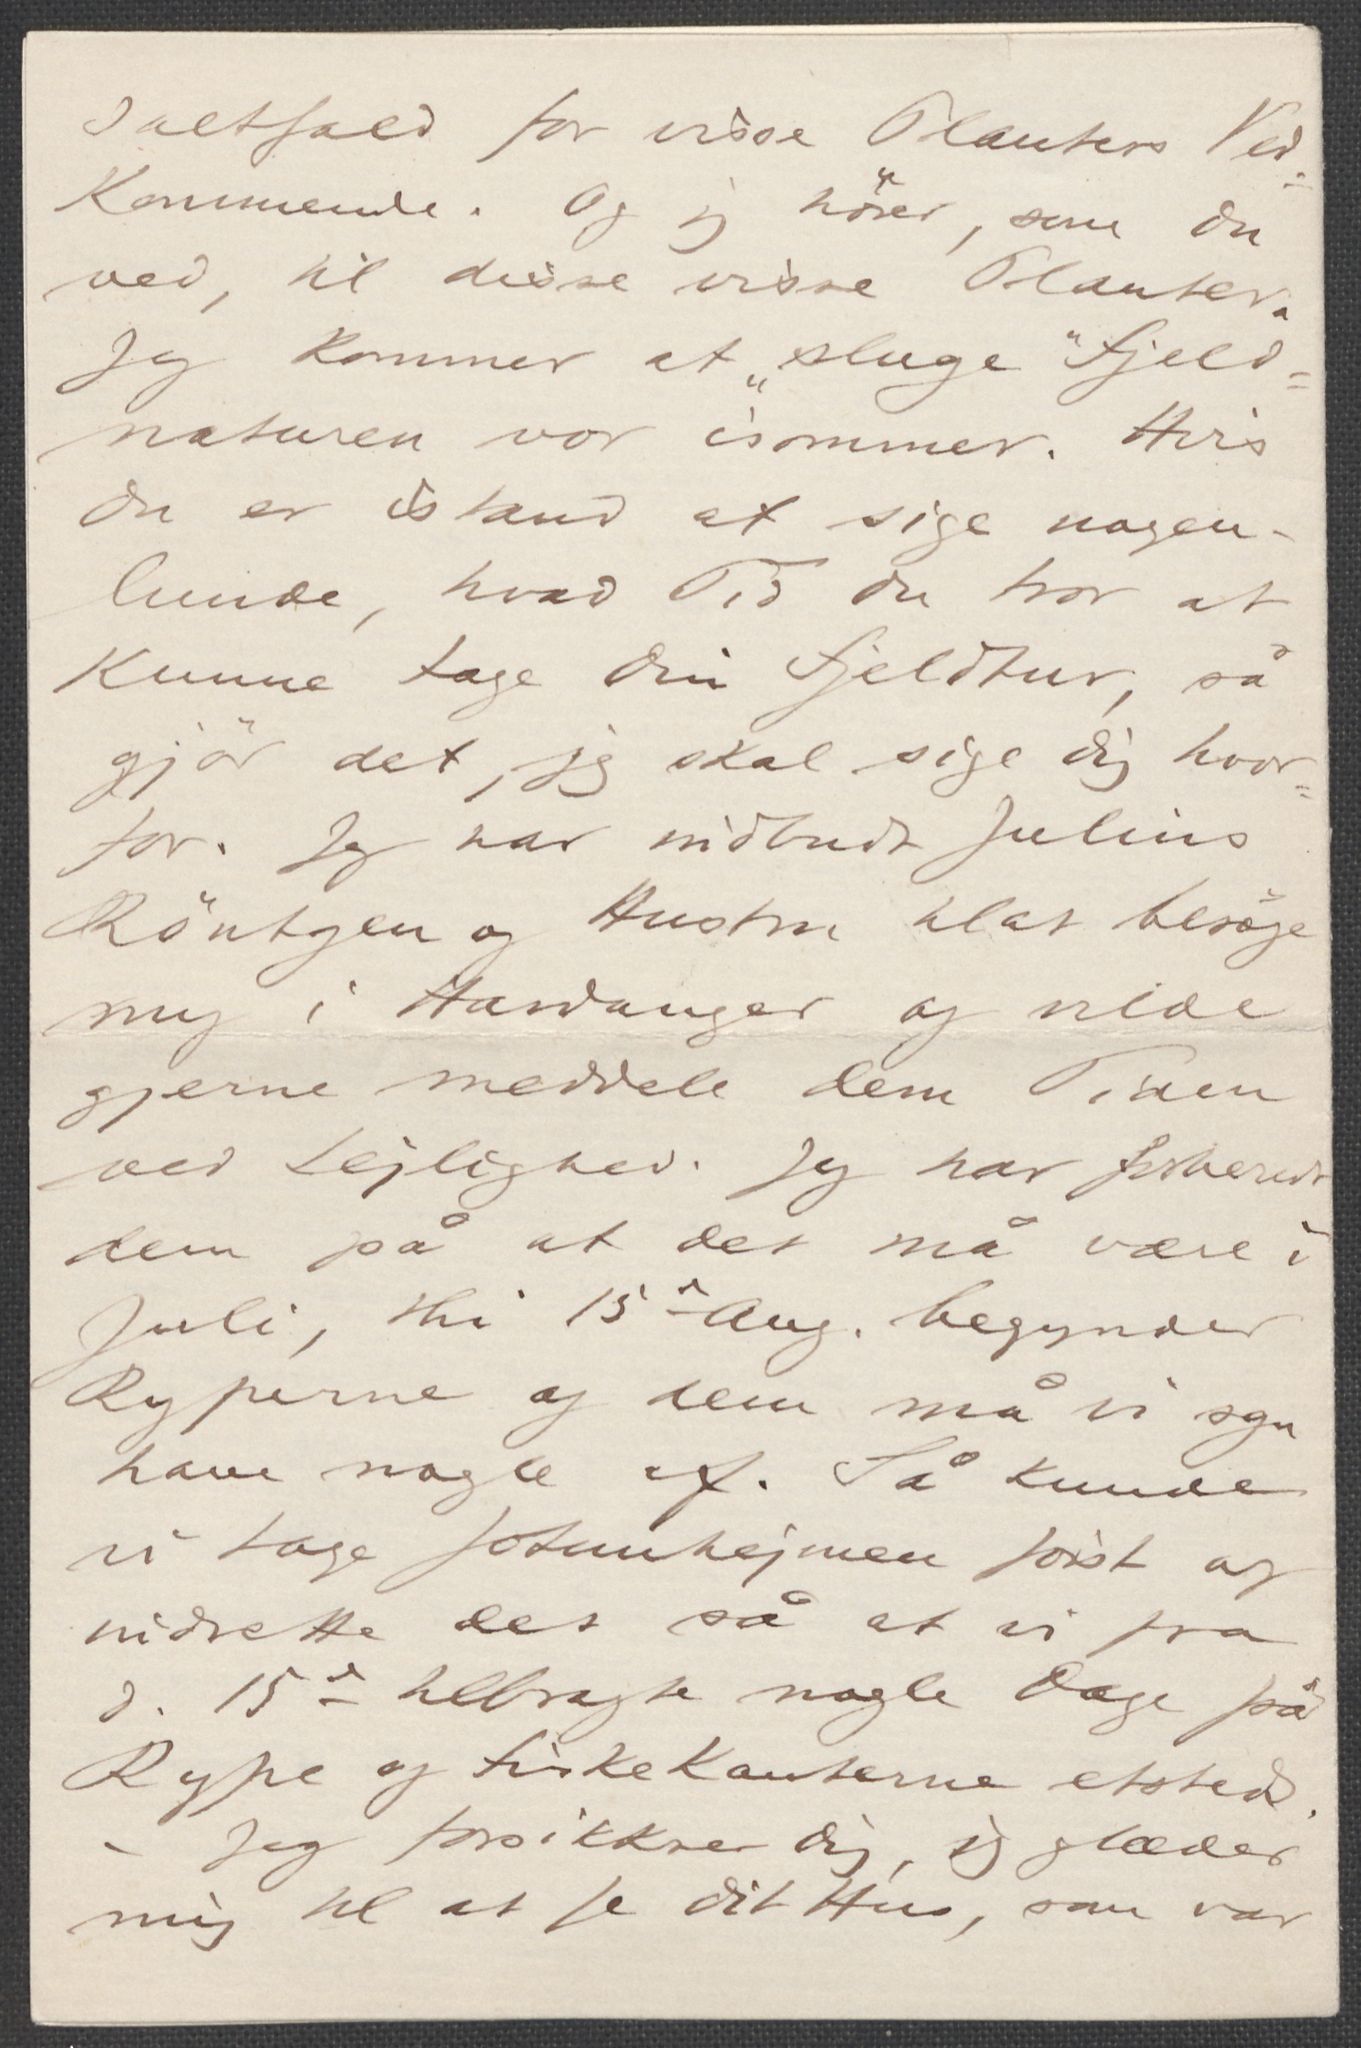 Ialtfald for visse Planters Ved=
kommende. Og jeg hører, som du
ved, til disse visse Planter.
Jeg kommer at „sluge" Fjeld=
naturen vor isommer. Hvis
du er istand at sige nogen-
lunde, hvad Tid du tror at
kunne tage din Fjeldtur, så
gjör det, jeg skal sige dig hvor=
for. Jeg har indbudt Julius
Röntgen og Hustru til at besöge
mig i Hardanger og vilde
gjerne meddele dem Tiden
ved Lejlighed. Jeg har forberedt
dem på at det må være i
Juli, thi 15de Aug. begynder
Ryperne og dem må vi sgu
have nogle af. Så kunde
vi tage Jotunhejmen först og
indrette det så at vi fra
d. 15de tilbragte nogle Dage på
Rype og Fiskekanterne etsteds.
- Jeg forsikkrer dig, jeg glæder
mig til at se dit Hus, som var